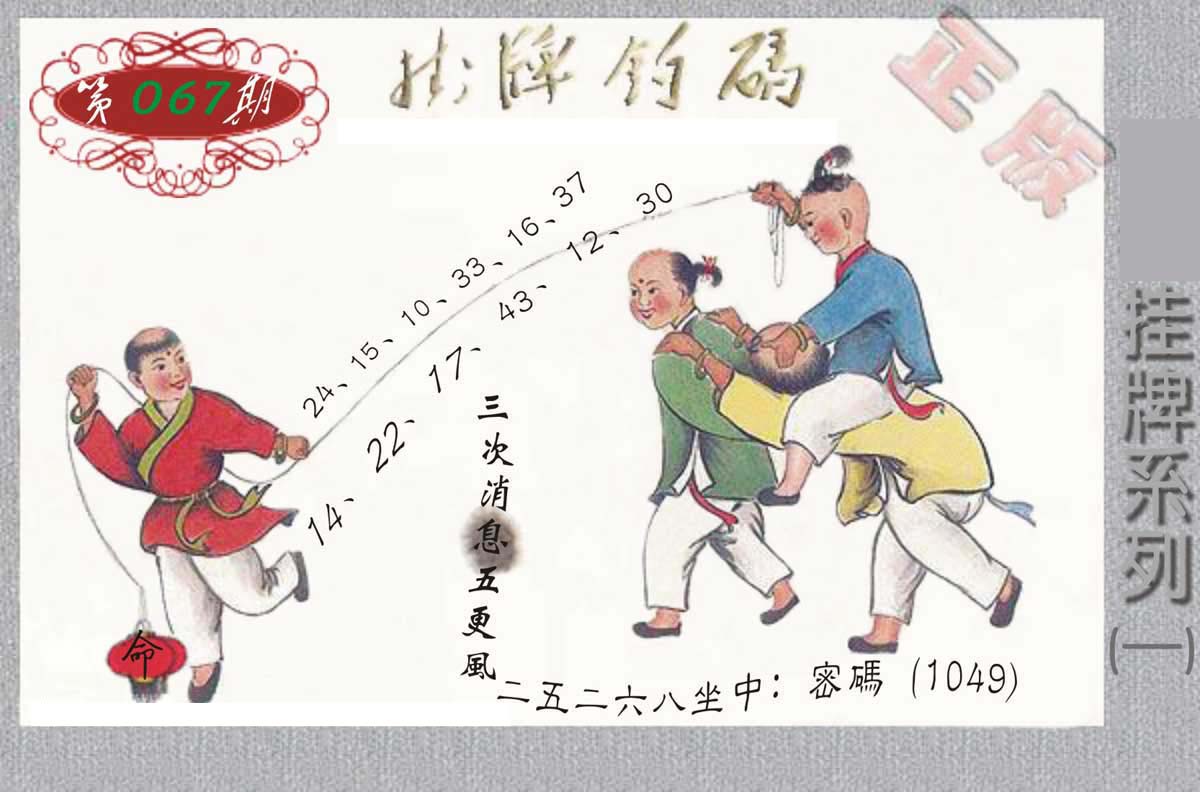 第067期
掛牌釣碼
正版
24、15、10、33、16、37
14、22、17、43、12、30
三次消息五更風
二五二六八坐中：密碼(1049)
命
挂牌系列(一)